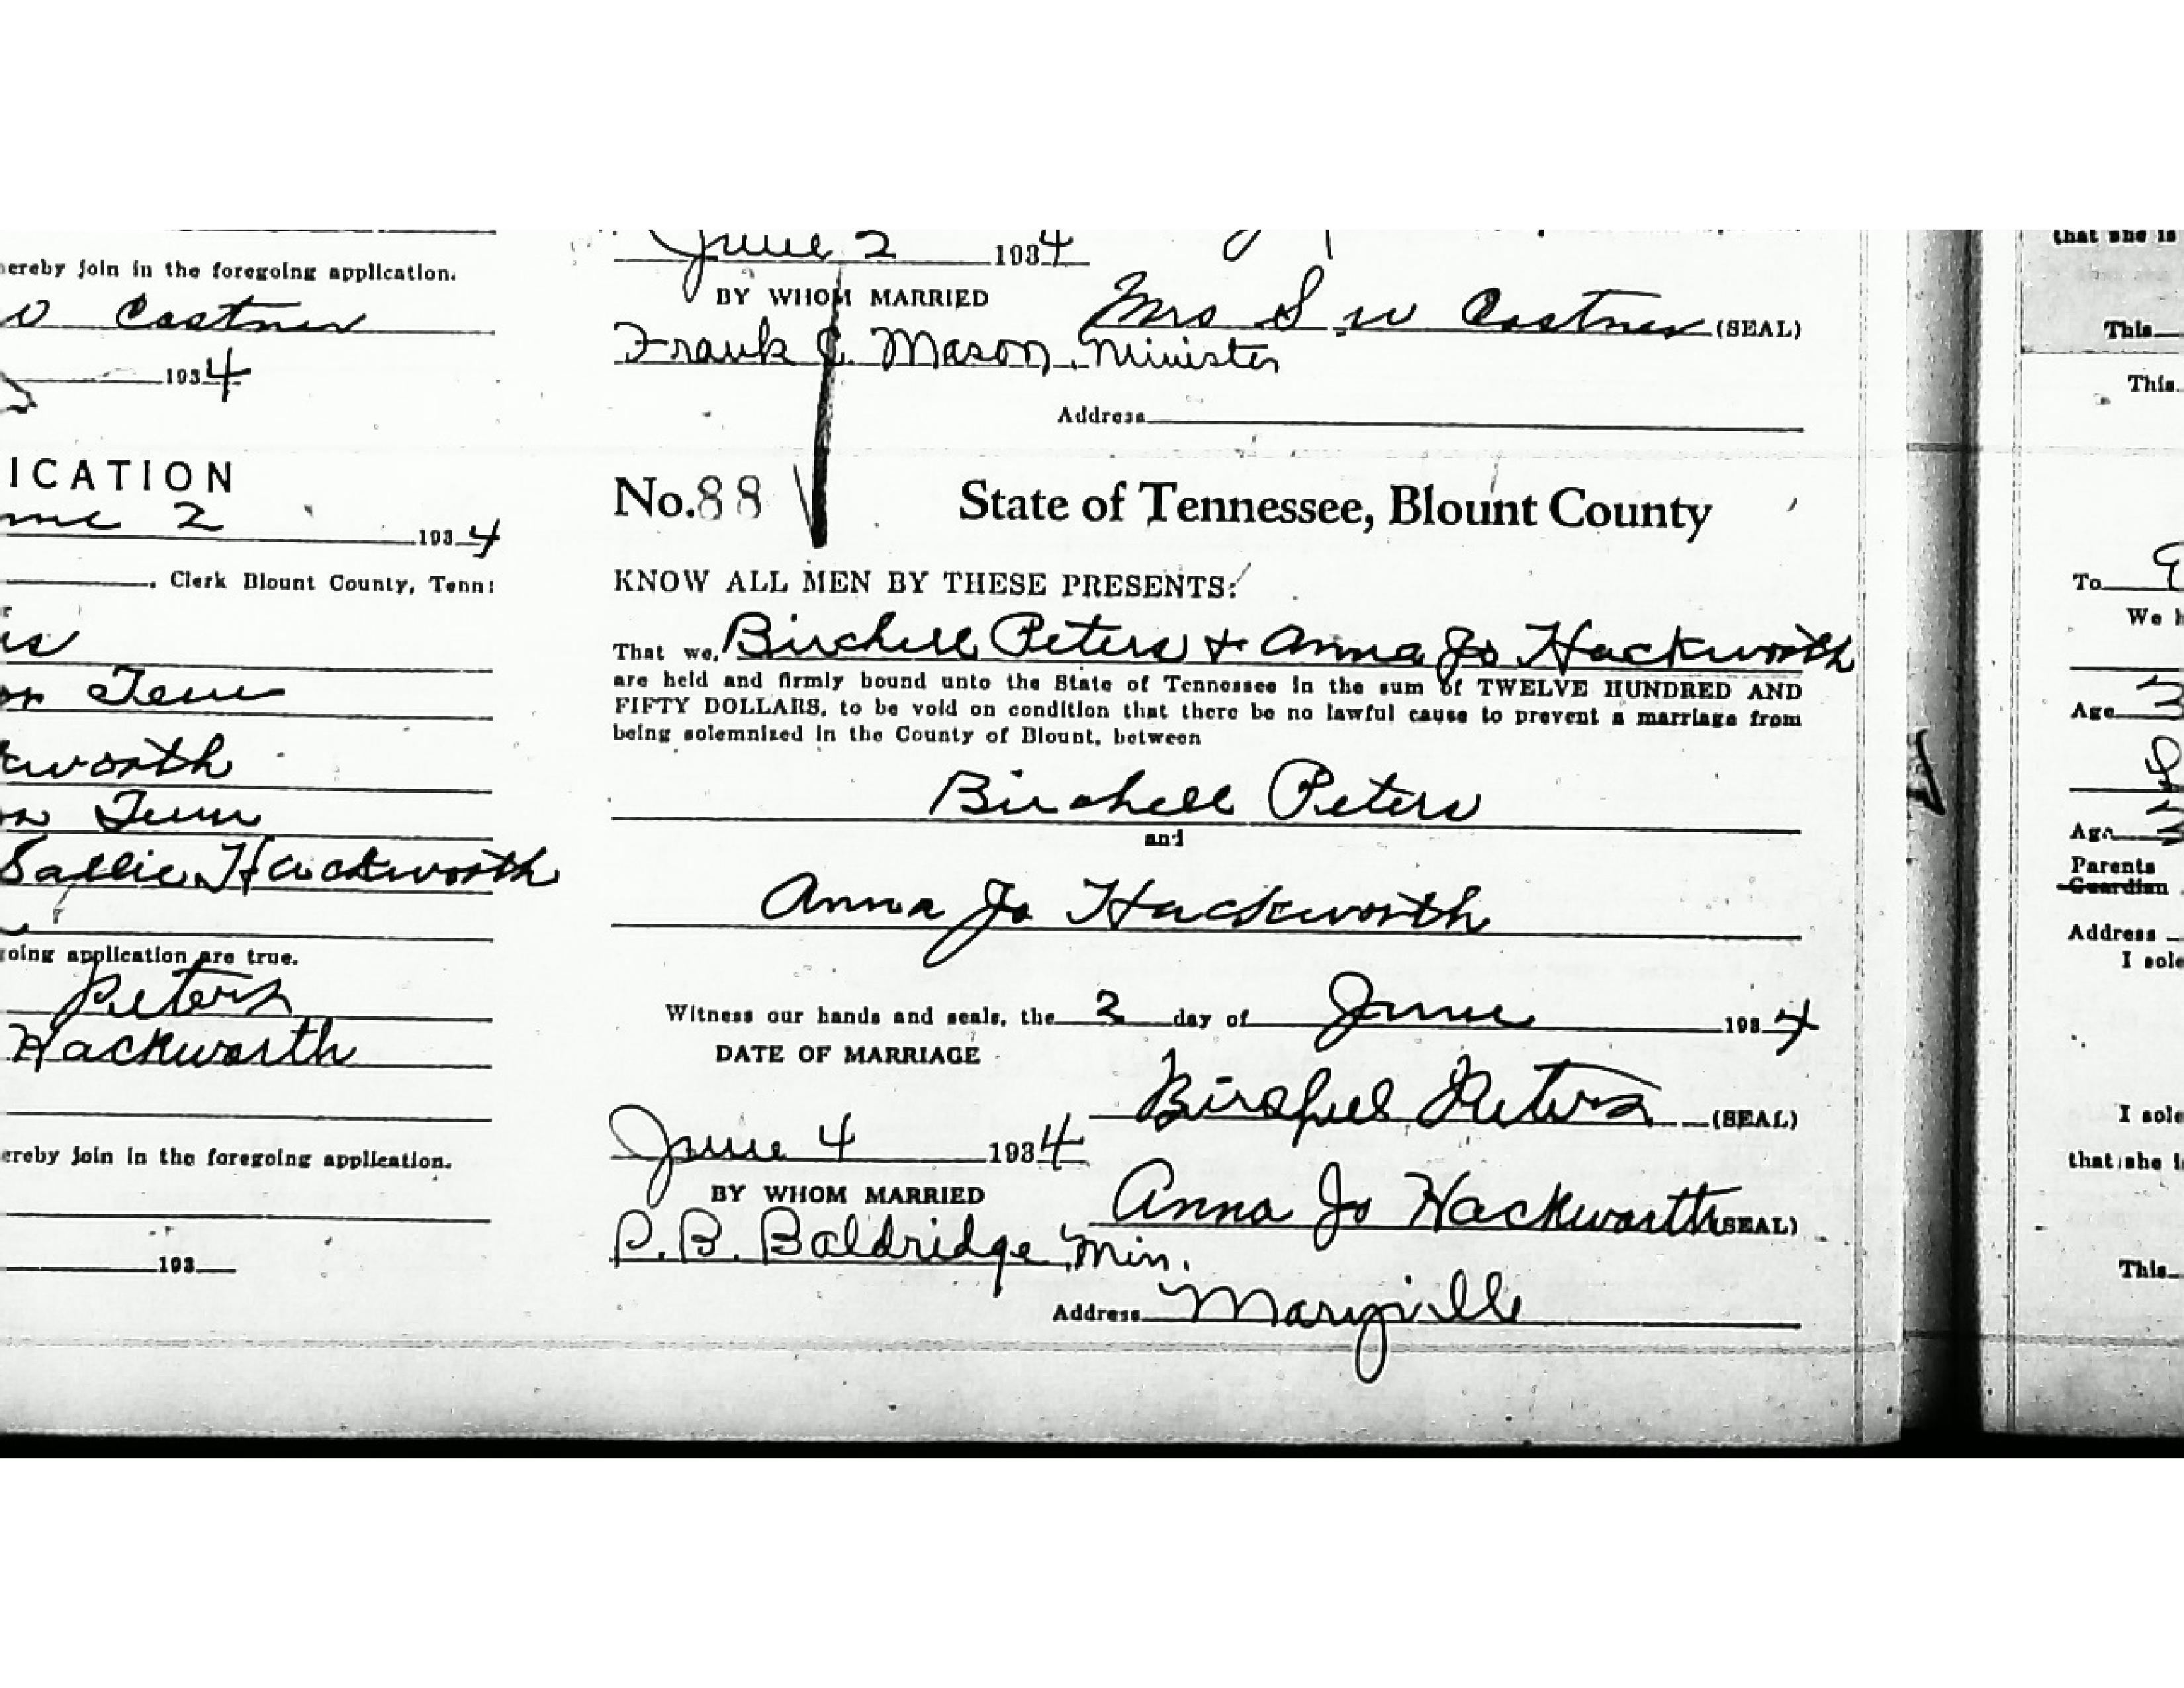 ereby join in the foregoing application.
Castner
1934
ICATION
2 1934
Clerk Blount County, Tenn:
Tenn
worth
Tenn
Sallie Hackworth
going application are true.
Peters
Hackworth
ereby join in the foregoing application.
193
June 2 1934
BY WHOM MARRIED
Mrs S. W Castner (SEAL)
Frank J. Mason, Minister
Address
No. 88 State of Tennessee, Blount County
KNOW ALL MEN BY THESE PRESENTS:
That we, Birchell Peters & Anna Jo Hackworth
are held and firmly bound unto the State of Tennessee in the sum of TWELVE HUNDRED AND
FIFTY DOLLARS, to be void on condition that there be no lawful cause to prevent a marriage from
being solemnized in the County of Blount, between
Birchell Peters
and
Anna Jo Hackworth
Witness our hands and seals, the 2 day of June 1934
DATE OF MARRIAGE
Birchell Peters (SEAL)
June 4 1934
BY WHOM MARRIED
Anna Jo Hackworth (SEAL)
P. B. Baldridge, Min.
Address Maryville
that she is
This
This
To
We h
Age
Age
Parents
Guardian
Address
I sole
I sole
that she i
This